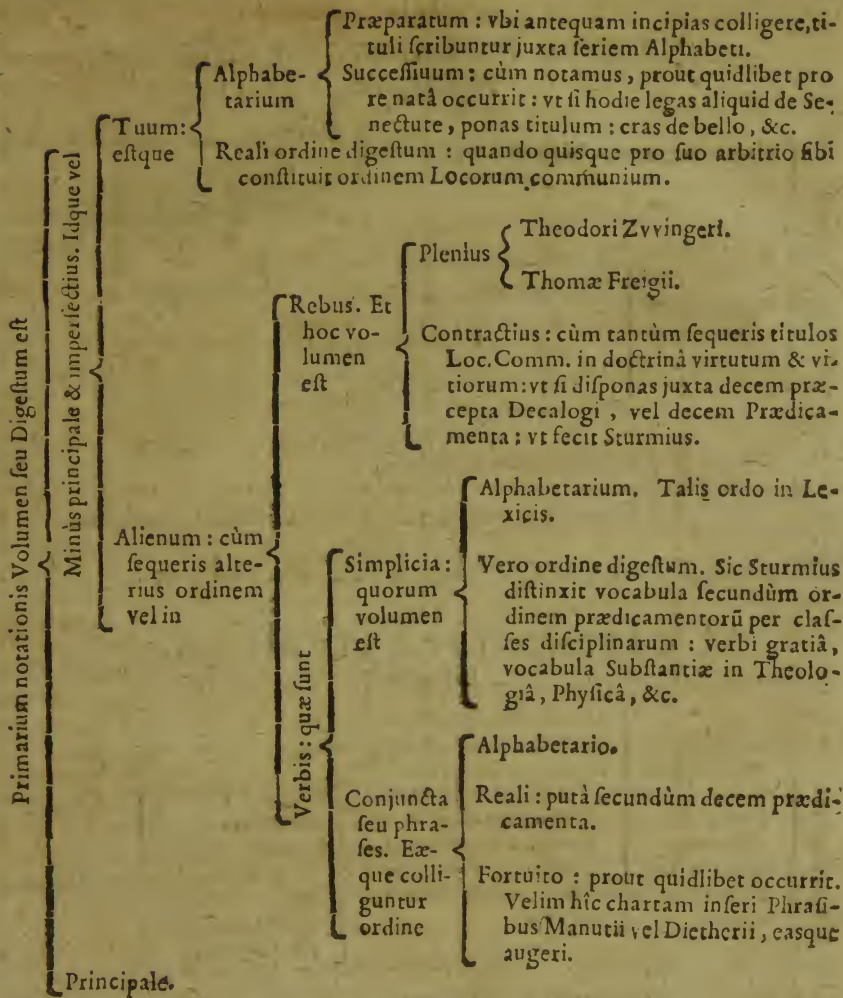 Primarium notationis Volumen seu Digestum est
Minùs principale & imperfectius. Idque vel
Tuum:
estque
Alphabe-
tarium
Præparatum : vbi antequam incipias colligere, ti-
tuli scribuntur juxta seriem Alphabeti.
Successiuum : cùm notamus, prout quidlibet pro
re natâ occurrit : vt si hodie legas aliquid de Se-
nectute, ponas titulum : cras de bello, &c.
Reali ordine digestum : quando quisque pro suo arbitrio sibi
constituit ordinem Locorum communium.
Alienum : cùm
sequeris alte-
rius ordinem
vel in
Rebus. Et
hoc vo-
lumen
est
Plenius
Theodori Zvvingeri.
Thomæ Freigii.
Contractius : cùm tantùm sequeris titulos
Loc. Comm. in doctrinâ virtutum & vi-
tiorum : vt si disponas juxta decem præ-
cepta Decalogi, vel decem Prædica-
menta ; vt fecit Sturmius.
Verbis : quæ sunt
Simplicia :
quorum
volumen
est
Alphabetarium. Talis ordo in Le-
xicis.
Vero ordine digestum. Sic Sturmius
distinxit vocabula secundùm or-
dinem prædicamentorũ per clas-
ses disciplinarum : verbi gratiâ,
vocabula Substantiæ in Theolo-
giâ, Physicâ, &c.
Conjuncta
seu phra-
ses. Eæ-
que colli-
guntur
ordine
Alphabetario.
Reali : putà secundùm decem prædi-
camenta.
Fortuito : prout quidlibet occurrit.
Velim hîc chartam inseri Phrasi-
bus Manutii vel Dietherii, easque
augeri.
Principale.